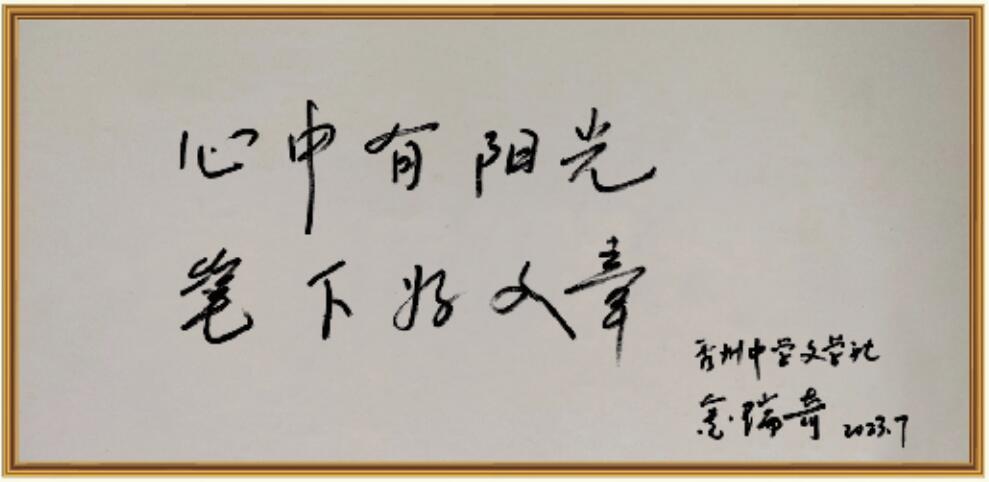 心中有阳光
笔下好文章
秀州中学文学社
金瑞奇 2023.7